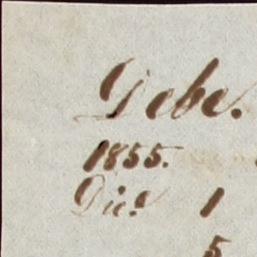 Debe.
1855.
Dice. 1
5